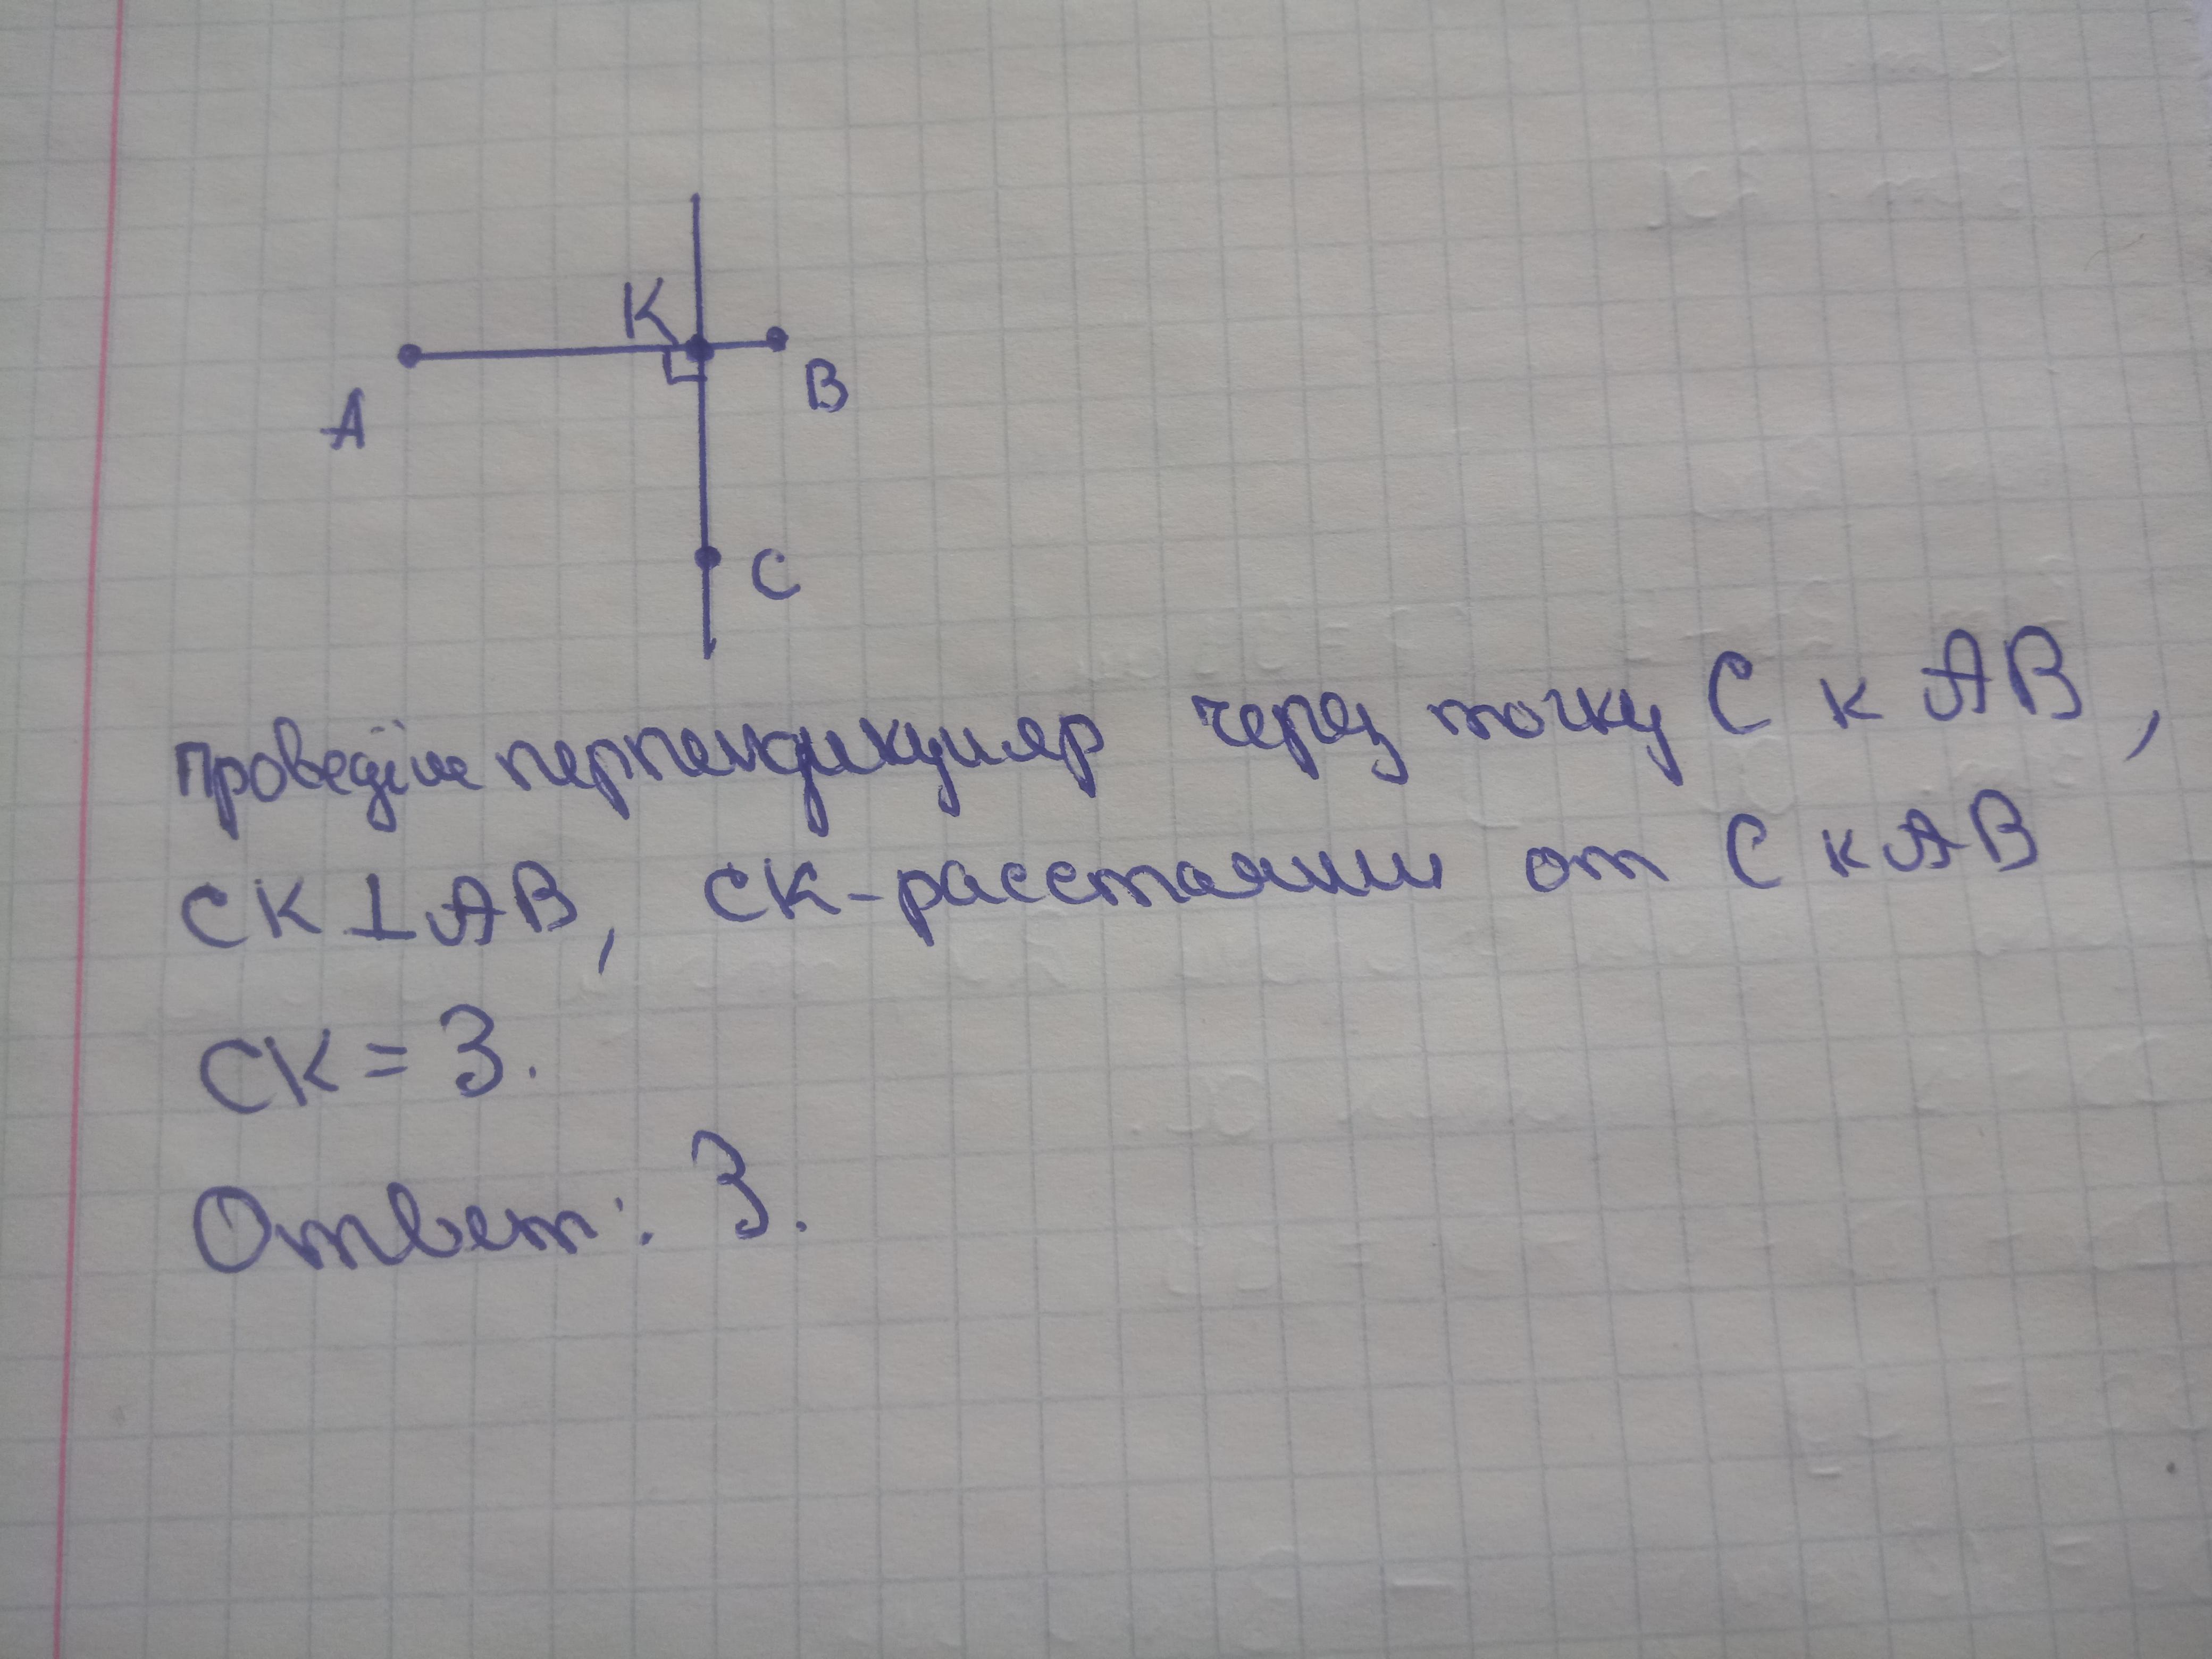 K
A
B
C
проведём перпендикуляр через точку C к AB,
CK⊥AB, CK-расстояние от C к AB
CK = 3.
Ответ: 3.